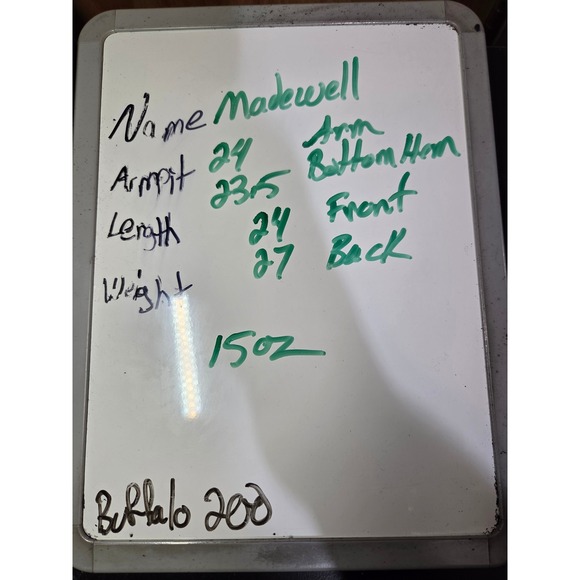 Name Madewell
Armpit 24 Arm
23.5 Bottom Hem
Length 24 Front
27 Back
Weight
15oz
Buffalo 200